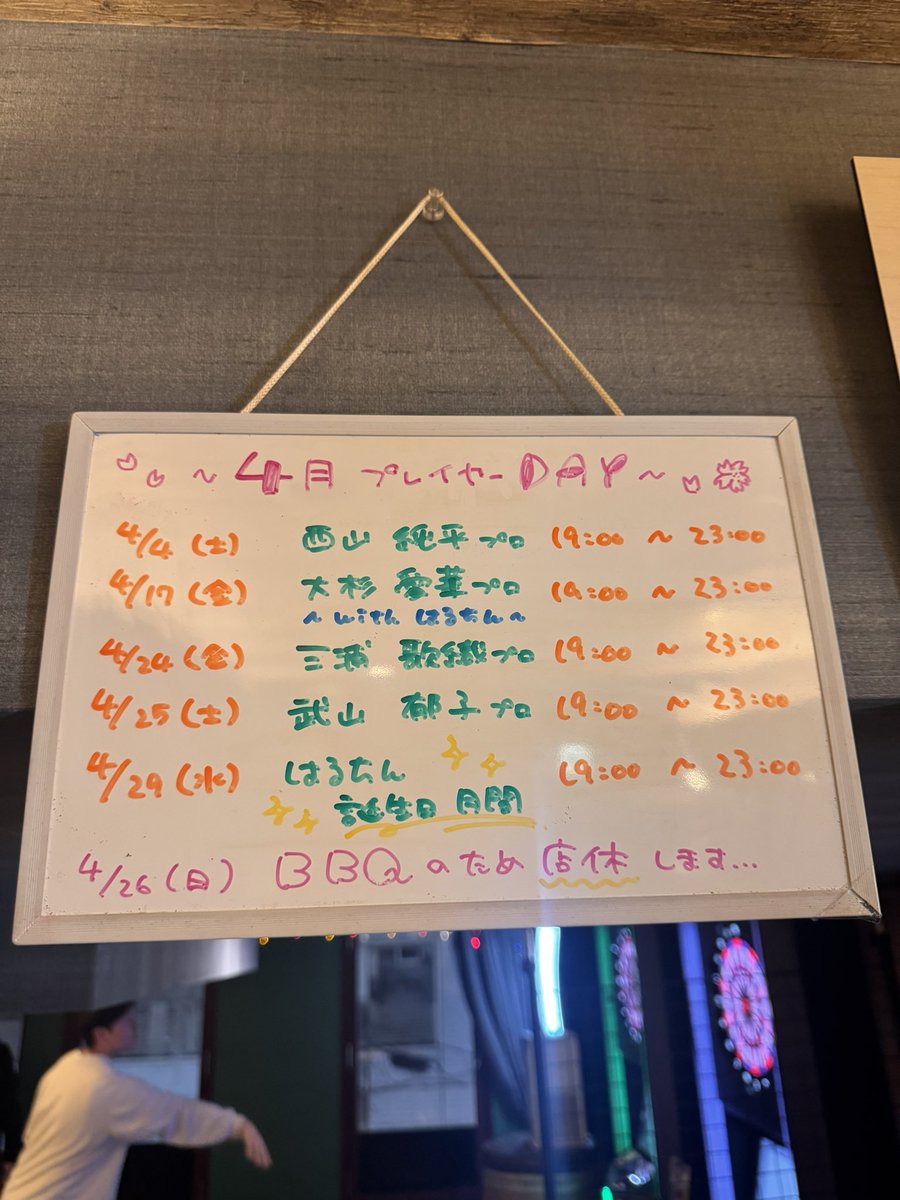 ～4月 プレイヤーDAY～
4/4(土) 西山 純平プロ 19:00 ～ 23:00
4/17(金) 大杉 愛華プロ 19:00 ～ 23:00
～with はるちん～
4/24(金) 三浦 歌織プロ 19:00 ～ 23:00
4/25(土) 武山 郁子プロ 19:00 ～ 23:00
4/29(水) はるちん 19:00 ～ 23:00
誕生日 月間
4/26(日) BBQのため店休します...